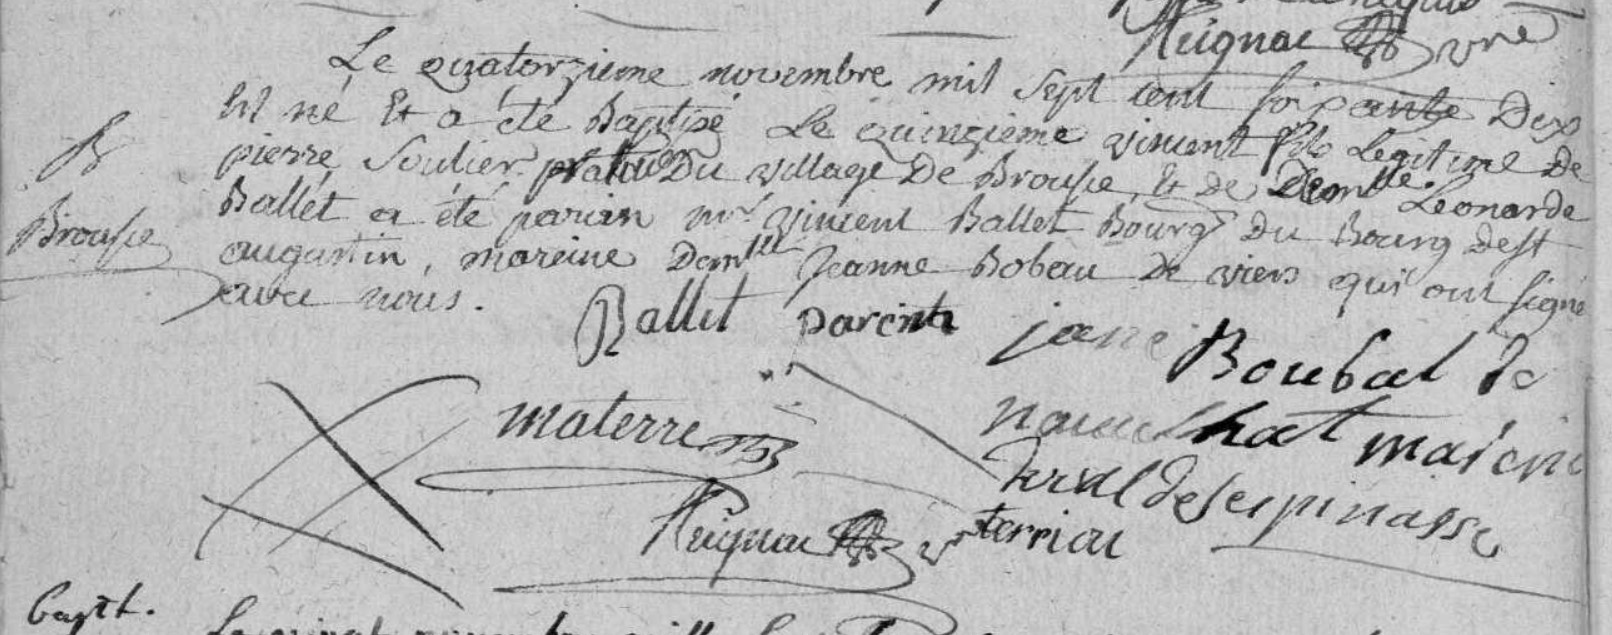 Meignac vre
Le quatorzieme novembre mil sept cent soixante Dix
Est né Et a été Baptisé Le quinzieme vincent fils Legitime De
pierre Soulier praticien Du village De Brousse, Et de Demlle Leonarde
Ballet a été parian mr vincent Ballet Bourgs Du Bourg Dest
augustin, mareine Demlle Jeanne Bobeau De viers qui ont signé
avec nous.
B
Brousse
Ballet parent jane Boubal de
materre naucelhat mareine
Durval de lespinasse
Meignac vre terriou
Bapt.